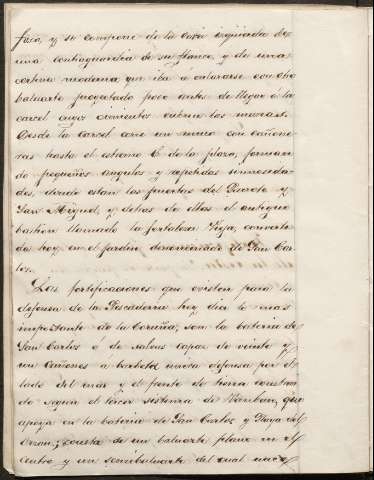 fica, y se compone de la cara izquierda de
una contraguardia de su flanco, y de una
cortina moderna que iba á enlazarse con otro
baluarte proyectado poco antes de llegar á la
carcel cuyos cimientos cubren las mareas.
Desde la carcel corre un muro con cañone-
ras hasta el estremo E. de la plaza, forman-
do pequeños angulos y repetidas
donde estan las puertas del Parrote y
San Miguel, y detras de ellas el antiguo
bastion llamado la fortaleza Vieja, converti-
do hoy en el jardin denominado de San Car-
los.
Las fortificaciones que existen para la
defensa de la Pescaderia hoy dia lo mas
importante de la Coruña, son la bateria de
San Carlos ó de salvas capaz de veinte y
un cañones á barbeta unica defensa por el
lado del mar y el frente de tierra construi-
do segun el tercer sistema de Vauban, que
apoya en la bateria de San Carlos y Playa del
Orzan; consta de un baluarte plano en el
centro y un semibaluarte del cual nace